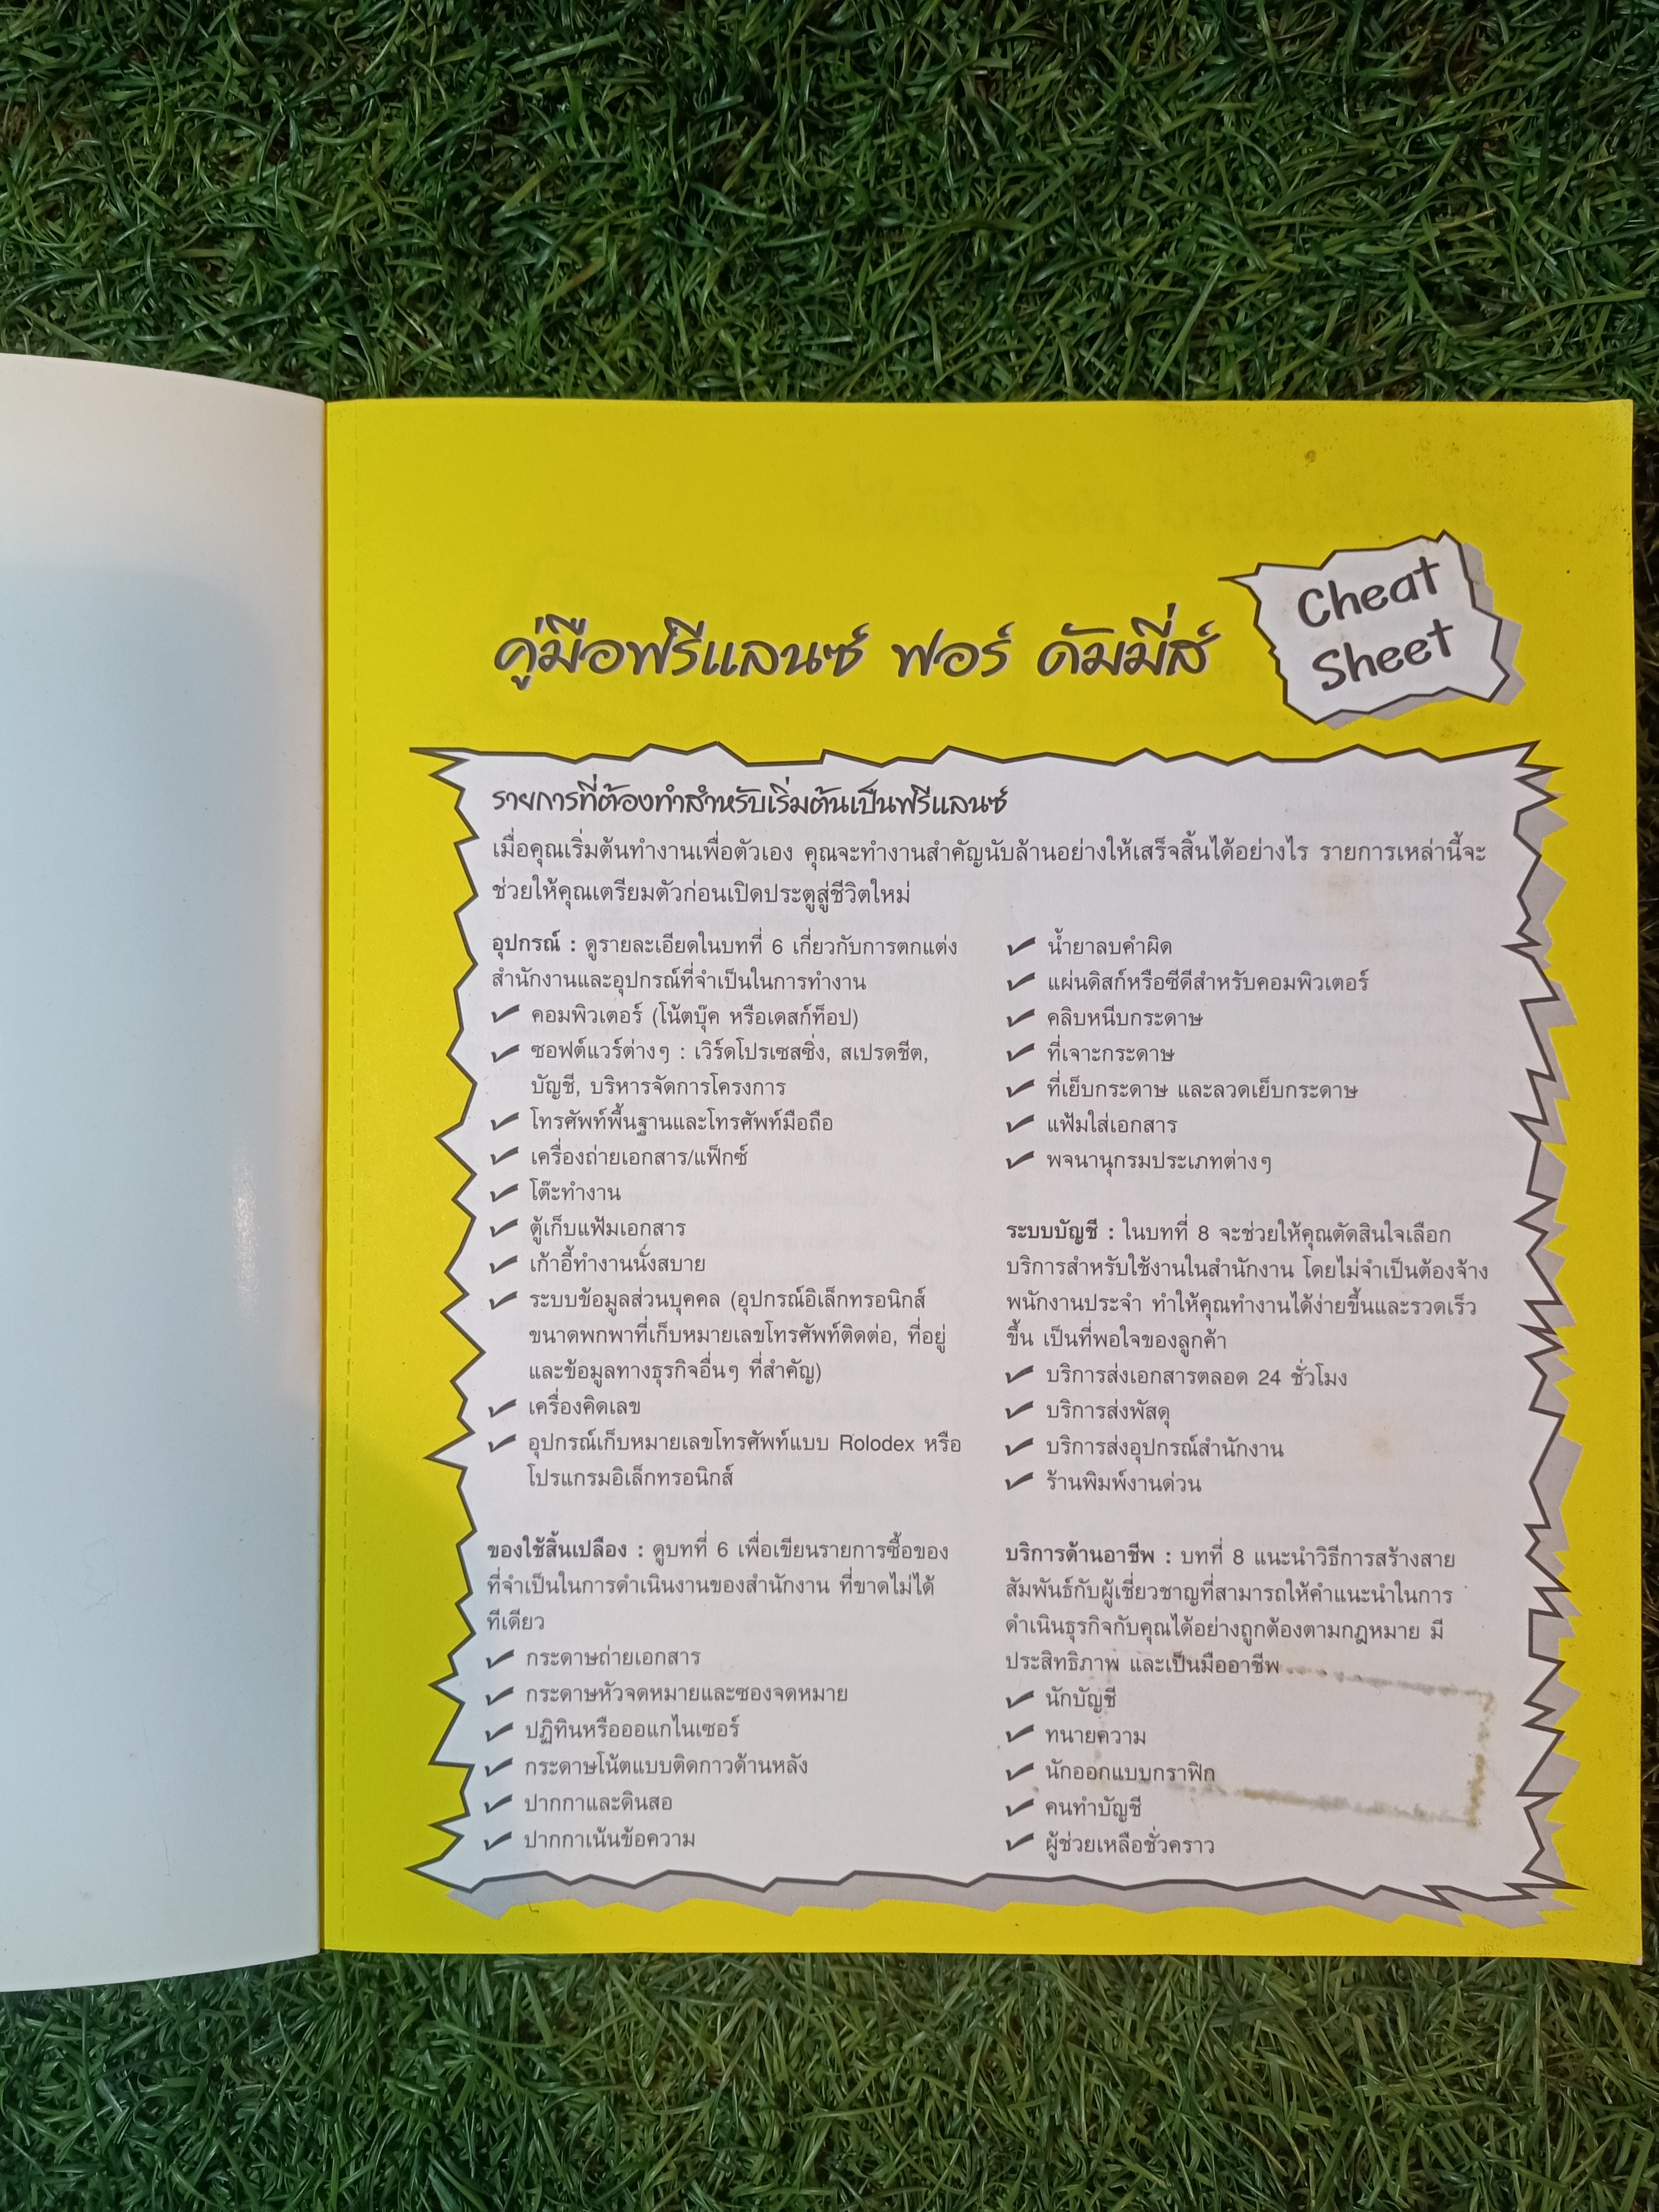 คู่มือฟรีแลนซ์ ฟอร์ ดัมมี่ส์
Cheat
Sheet
รายการที่ต้องทำสำหรับเริ่มต้นเป็นฟรีแลนซ์
เมื่อคุณเริ่มต้นทำงานเพื่อตัวเอง คุณจะทำงานสำคัญนับล้านอย่างให้เสร็จสิ้นได้อย่างไร รายการเหล่านี้จะ
ช่วยให้คุณเตรียมตัวก่อนเปิดประตูสู่ชีวิตใหม่
อุปกรณ์ : ดูรายละเอียดในบทที่ 6 เกี่ยวกับการตกแต่ง
สำนักงานและอุปกรณ์ที่จำเป็นในการทำงาน
✓ คอมพิวเตอร์ (โน้ตบุ๊ค หรือเดสก์ท็อป)
✓ ซอฟต์แวร์ต่างๆ : เวิร์ดโปรเซสซิ่ง, สเปรดชีต,
บัญชี, บริหารจัดการโครงการ
✓ โทรศัพท์พื้นฐานและโทรศัพท์มือถือ
✓ เครื่องถ่ายเอกสาร/แฟ็กซ์
✓ โต๊ะทำงาน
✓ ตู้เก็บแฟ้มเอกสาร
✓ เก้าอี้ทำงานนั่งสบาย
✓ ระบบข้อมูลส่วนบุคคล (อุปกรณ์อิเล็กทรอนิกส์
ขนาดพกพาที่เก็บหมายเลขโทรศัพท์ติดต่อ, ที่อยู่
และข้อมูลทางธุรกิจอื่นๆ ที่สำคัญ)
✓ เครื่องคิดเลข
✓ อุปกรณ์เก็บหมายเลขโทรศัพท์แบบ Rolodex หรือ
โปรแกรมอิเล็กทรอนิกส์
ของใช้สิ้นเปลือง : ดูบทที่ 6 เพื่อเขียนรายการซื้อของ
ที่จำเป็นในการดำเนินงานของสำนักงาน ที่ขาดไม่ได้
ทีเดียว
✓ กระดาษถ่ายเอกสาร
✓ กระดาษหัวจดหมายและซองจดหมาย
✓ ปฏิทินหรือออแกไนเซอร์
✓ กระดาษโน้ตแบบติดกาวด้านหลัง
✓ ปากกาและดินสอ
✓ ปากกาเน้นข้อความ
✓ น้ำยาลบคำผิด
✓ แผ่นดิสก์หรือซีดีสำหรับคอมพิวเตอร์
✓ คลิบหนีบกระดาษ
✓ ที่เจาะกระดาษ
✓ ที่เย็บกระดาษ และลวดเย็บกระดาษ
✓ แฟ้มใส่เอกสาร
✓ พจนานุกรมประเภทต่างๆ
ระบบบัญชี : ในบทที่ 8 จะช่วยให้คุณตัดสินใจเลือก
บริการสำหรับใช้งานในสำนักงาน โดยไม่จำเป็นต้องจ้าง
พนักงานประจำ ทำให้คุณทำงานได้ง่ายขึ้นและรวดเร็ว
ขึ้น เป็นที่พอใจของลูกค้า
✓ บริการส่งเอกสารตลอด 24 ชั่วโมง
✓ บริการส่งพัสดุ
✓ บริการส่งอุปกรณ์สำนักงาน
✓ ร้านพิมพ์งานด่วน
บริการด้านอาชีพ : บทที่ 8 แนะนำวิธีการสร้างสาย
สัมพันธ์กับผู้เชี่ยวชาญที่สามารถให้คำแนะนำในการ
ดำเนินธุรกิจกับคุณได้อย่างถูกต้องตามกฎหมาย มี
ประสิทธิภาพ และเป็นมืออาชีพ
✓ นักบัญชี
✓ ทนายความ
✓ นักออกแบบกราฟิก
✓ คนทำบัญชี
✓ ผู้ช่วยเหลือชั่วคราว